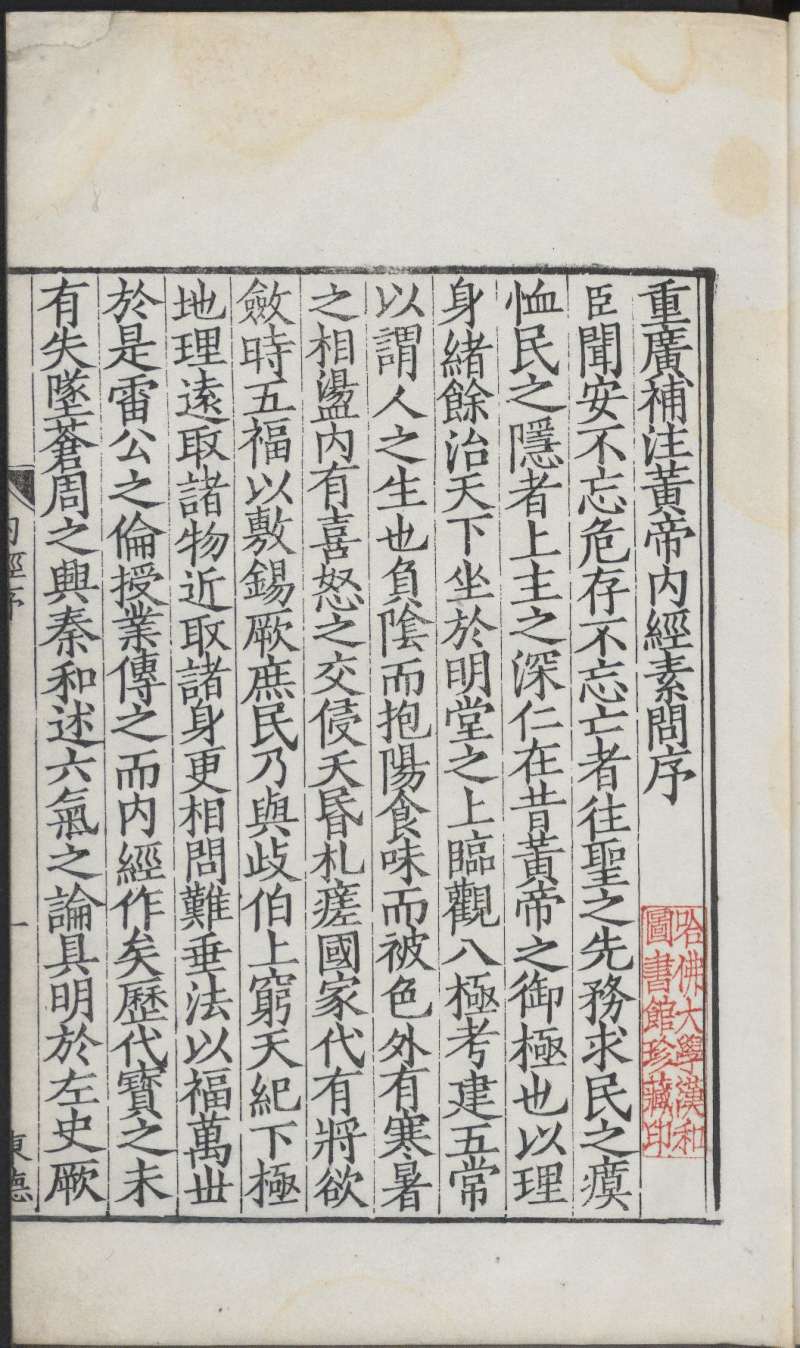 重廣補注黃帝內經素問序
臣聞安不忘危存不忘亡者往聖之先務求民之瘼
恤民之隱者上主之深仁在昔黃帝之御極也以理
身緒餘治天下坐於明堂之上臨觀八極考建五常
以謂人之生也負陰而抱陽食味而被色外有寒暑
之相盪內有喜怒之交侵夭昬札瘥國家代有將欲
斂時五福以敷錫厥庶民乃與歧伯上窮天紀下極
地理遠取諸物近取諸身更相問難垂法以福萬世
於是雷公之倫授業傳之而內經作矣歷代寶之未
有失墜蒼周之興秦和述六氣之論具明於左史厥
內經序
一
哈佛大學漢和
圖書館珍藏印